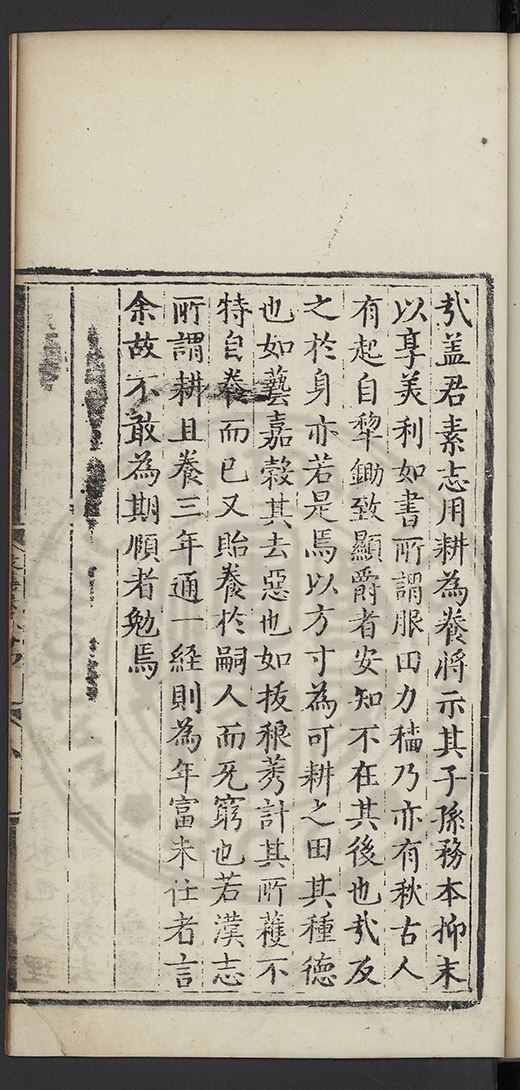 㢤盖君素志用耕為養將示其子孫務本抑末
以享美利如書所謂服田力穡乃亦有秋古人
有起自犂鋤致顯爵者安知不在其後也㢤反
之於身亦若是焉以方寸為可耕之田其種德
也如藝嘉穀其去惡也如拔稂莠計其所穫不
特自養而已又貽養於嗣人而旡窮也若漢志
所謂耕且養三年通一経則為年富未仕者言
余故不敢為期頋者勉焉